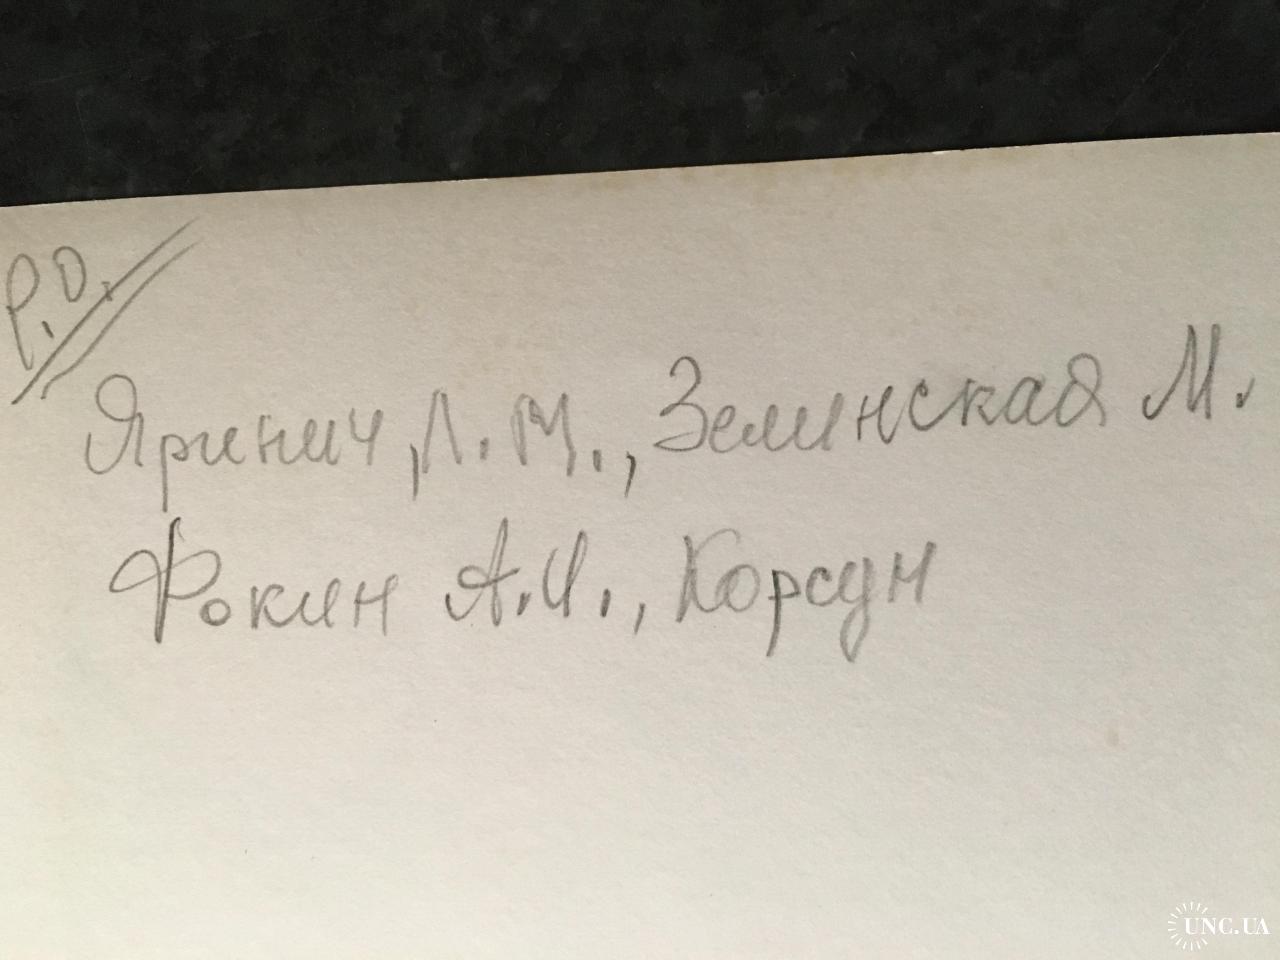 Р.О.
Яринич, Л. М., Зелинская М.
Фокин А.И., Корсун
UNC.UA